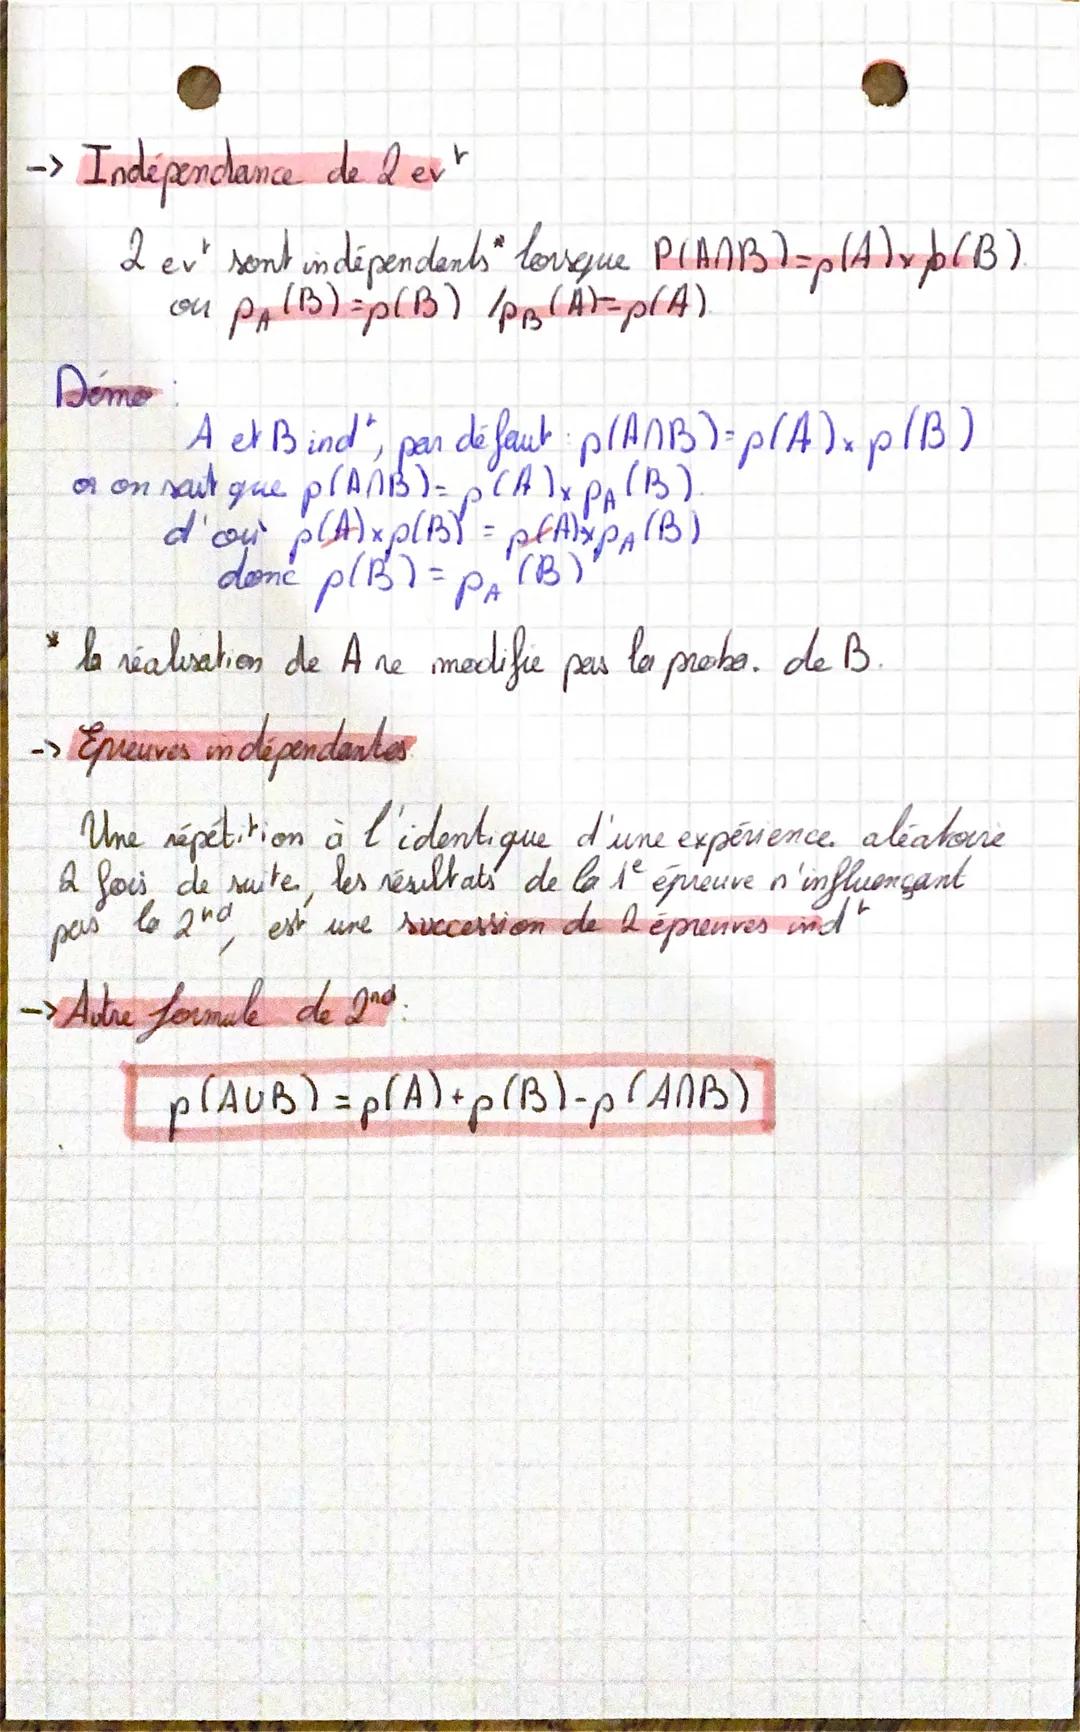 -> Indépendance de 2 evt
2 evt sont indépendants* lorsque P(A∩B)=p(A)×p(B).
ou pA(B)=p(B) /pB(A)=p(A).
Démo :
A et B indt, par défaut : p(A∩B)=p(A)×p(B)
or on sait que p(A∩B)=p(A)×pA(B).
d'où p(A)×p(B) = p(A)×pA(B)
donc p(B) = pA(B)
* la réalisation de A ne modifie pas la proba. de B.
-> Epreuves indépendantes
Une répétition à l'identique d'une expérience aléatoire
2 fois de suite, les résultats de la 1e épreuve n'influençant
pas la 2nd, est une succession de 2 épreuves indt
-> Autre formule de 2nd :
p(A∪B)=p(A)+p(B)-p(A∩B)